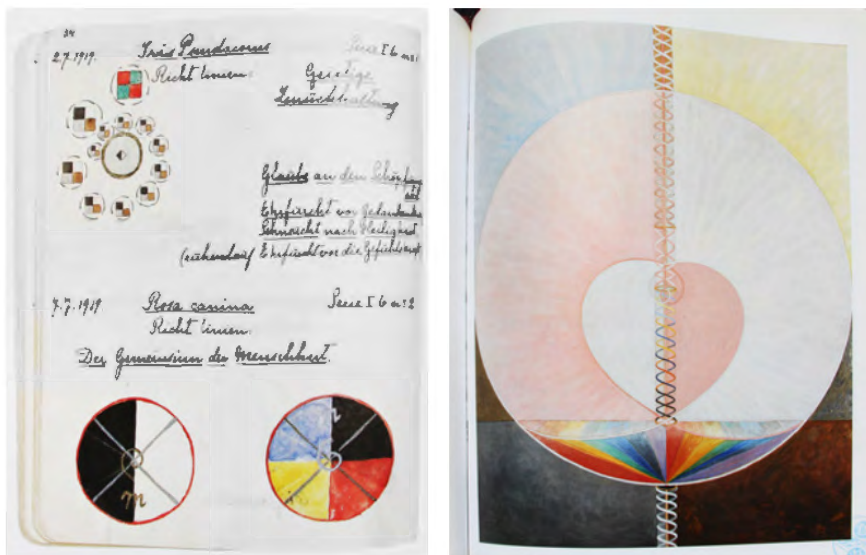 34
2.7.1919. Iris Pseudacorus Serie I 6 nr 1
Richt linien. Geistige
Glaube an den Schöpfer
mit
Ehrfurcht vor Gedanken
Sehnsucht nach Heiligkeit
Ehrfurcht vor die
7.7.1919 Rosa canina Serie I 6 nr 2
Richt linien.
Der Gemeinsinn der Menschheit.